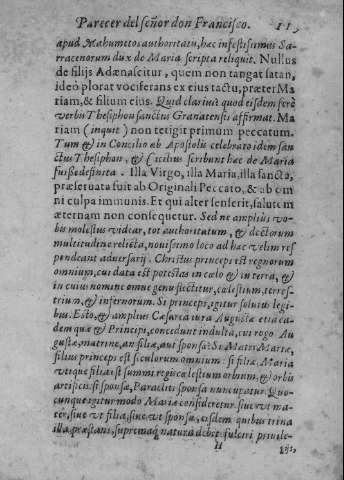 Parecer del señor don Francisco. 115
apud Mahumetos authoritatis, hæc infestissimus Sar-
racenorum dux de Maria scripta reliquit. Nullus
de filijs Adæ nascitur, quem non tangat satan,
ideò plorat vociferans ex eius tactu, præter Ma
riam, & filium eius. Quid clarius quod eisdem ferè
verbis Thesiphon sanctus Granatensis affirmat. Ma
riam (inquit) non tetigit primum peccatum.
Tum & in Concilio ab Apostolis celebrato idem san-
ctus Thesiphon, & Cæcilius scribunt hæc de Maria
fuisse definita. Illa Virgo, illa Maria, illa sancta,
præseruata fuit ab Originali Peccato, & ab om
ni culpa immunis. Et qui aliter senserit, salutem
æternam non consequetur. Sed ne amplius vo-
bis molestus videar, tot authoritatum, & doctorum
multitudine relicta, nouissimo loco ad hæc velim res
pondeant aduersarij. Christus princeps est regnorum
omnium, cui data est potestas in cœlo & in terra, &
in cuius nomine omne genu flectitur, cœlestium, terres-
trium, & infernorum. Si princeps, igitur solutus legi-
bus. Esto, & amplius Cæsarea iura Augustæ etiā ea-
dem quæ & Principi, concedunt indulta, cui rogo Au
gustæ, matri ne, an filiæ, aut sponsæ? Si Matri Mariæ,
filius princeps est sæculorum omnium: si filiæ, Maria
vtique filia est summi regis cælestium orbium, & orbis
artificis: si sponsæ, Paracliti sponsa nuncupatur. Quo-
cunque igitur modo Mariæ consideretur, siue vt ma-
ter, siue vt filia, siue vt sponsa, eisdem quibus trina
illa præstani, supremaq; natura debet fulciri priuile-
H gijs,